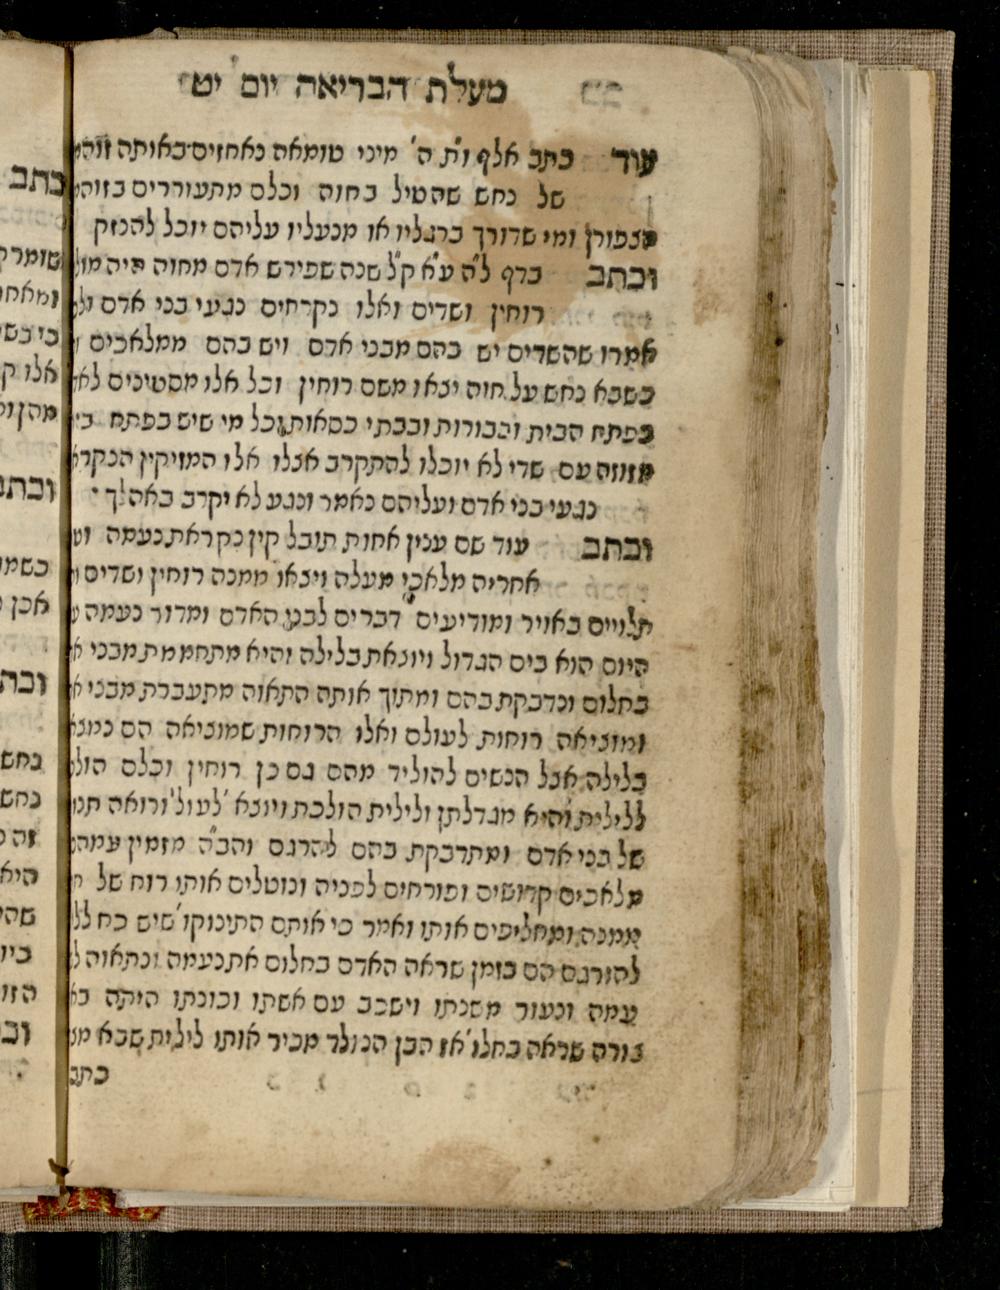 מעלת הבריאה יום יט
עוד כתב אלף ות ה' מיני טומאה נאחזים באותה
של נחש שהטיל בחוה וכלם מתעוררים
הצפורן ומי שדורך ברגליו או מנעליו עליהם יוכל להנזק
וכתב ברף ל"ה ע"א ק"ל שנה שפירש אדם מחוה היה
רוחין ושדים ואלו נקרחים נגעי בני אדם
אמרו שהשדים יש בהם מבני אדם ויש בהם ממלאכים
כשבא נחש על חוה יצאו משם רוחין וכל אלו מסטינים
בפתח הבית ובבורות ובבתי כסאות וכל מי שיש בפתח
מזוזה עם שדי לא יוכלו להתקרב אצלו אלו המזיקין
נגעי בני אדם ועליהם נאמר ונגע לא יקרב באהלך
וכתב עוד שם ענין אחות תובל קין נקראת נעמה
אחריה מלאכי מעלה ויצאו ממנה רוחין ושדים
תלויים באויר ומודיעים דברים לבני האדם ומדור נעמה
היום הוא בים הגדול ויוצאת בלילה והיא מתחממת מבני
בחלום ונדבקת בהם ומתוך אותה התאוה מתעברת מבני
ומוציאה רוחות לעולם ואלו הרוחות שמוציאה הם
בלילה אצל הנשים להוליד מהם גם כן רוחין וכלם
ללילית והיא מגדלתן ולילית הולכת ויוצא' לעול' ורואה
של בני אדם ומתדבקת בהם להרגם והב"ה מזמין
מלאכים קדושים ופורחים לפניה ונוטלים אותו רוח של
ממנה ומחליפים אותו ואמר כי אותם התינוקו' שיש כח
להורגם הם בזמן שראה האדם בחלום את נעמה ונתאוה
עמה ונעור משנתו וישכב עם אשתו וכונתו היתה
צורה שראה בחלו' אז הבן הנולד מכיר אותו לילית שבא
כתב
כתב
ובת